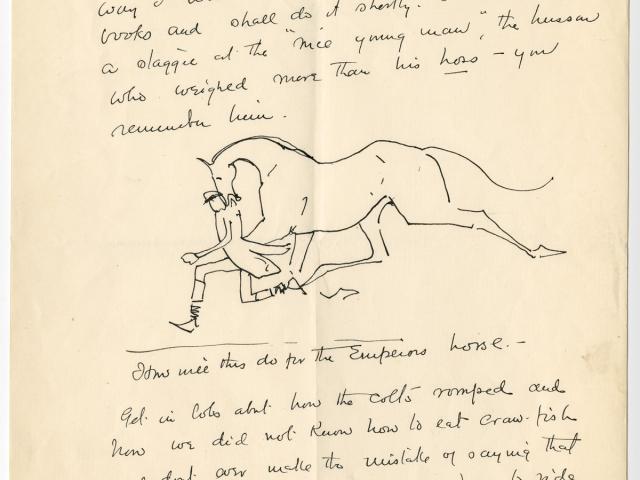 way I
books and shall do it shortly.
a slaggie at the "nice young man", the hussar
who weighed more than his hoss – you
remember him.
How will this do for the Emperors horse. –
Get in Cols about how the colts romped and
how we did not know how to eat craw-fish
dont ever make the mistake of saying that
ride